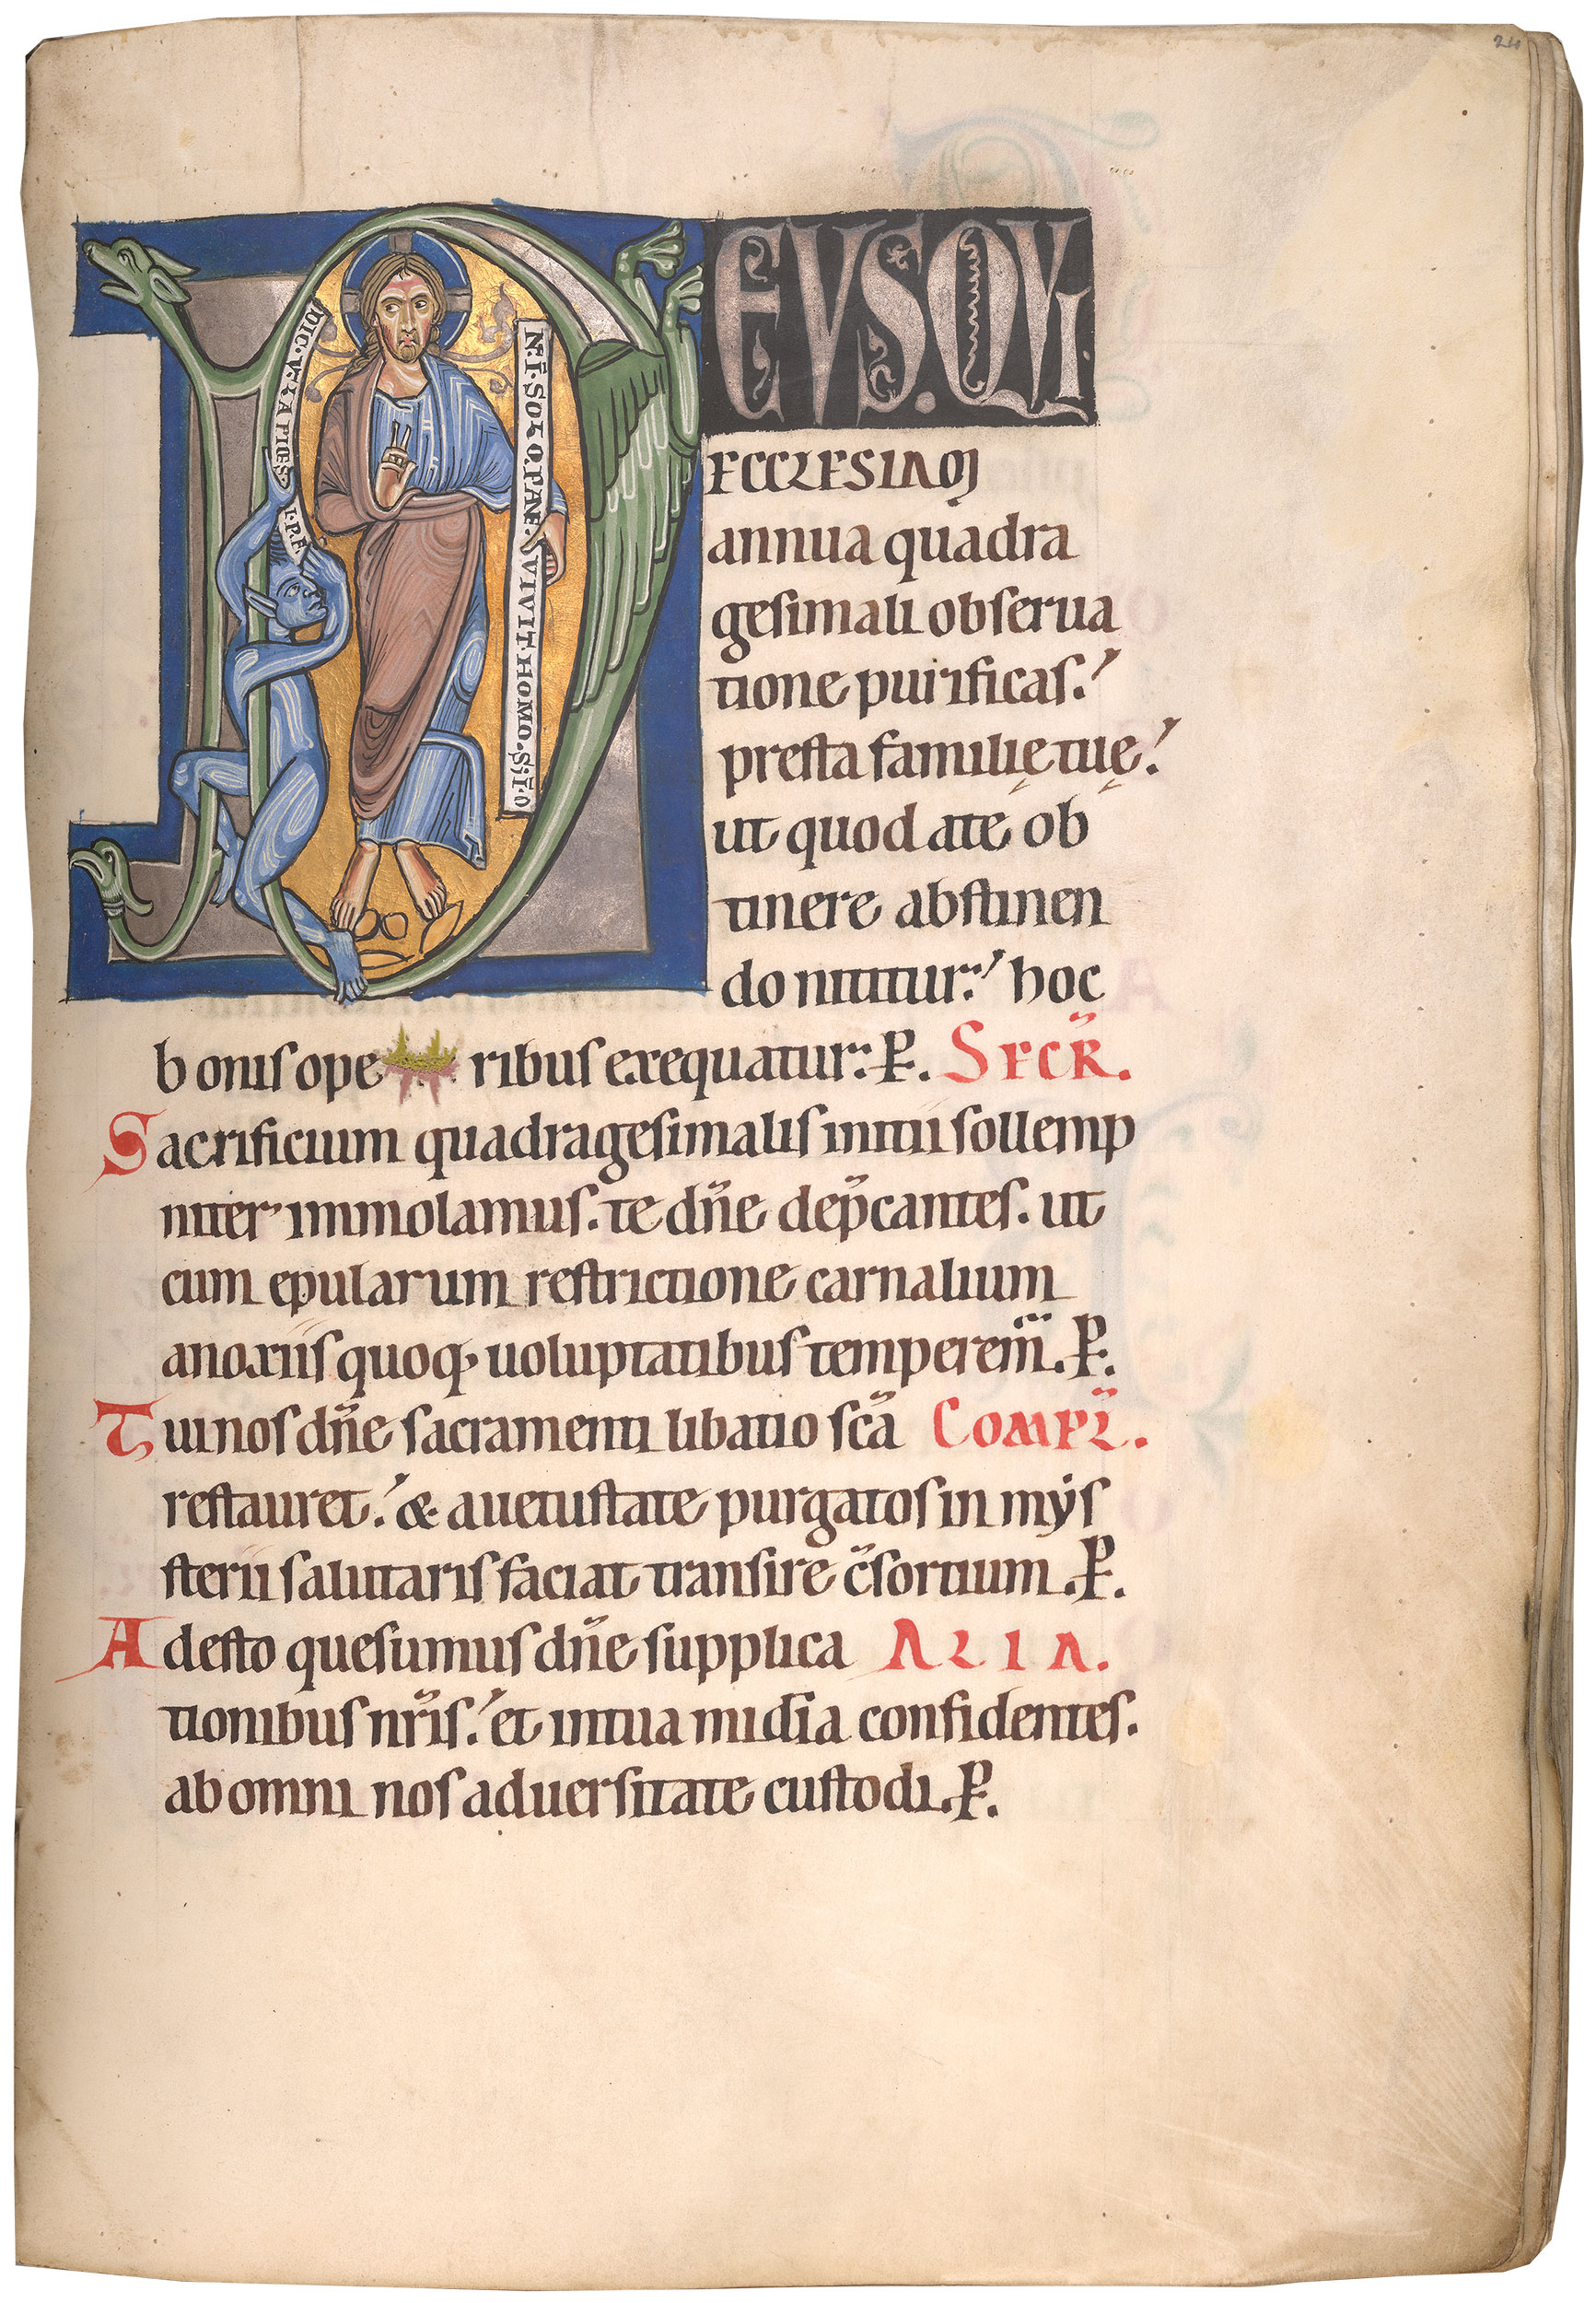 24
DIC·VT·LAPIDES·I·P·F
N·I·SOLO·PANE·VIVIT·HOMO·S;·I·O
DEVS·QVI
ECCLESIAM
annua quadra
gesimali obserua
tione purificas.
presta familię tuę.
ut quod a te ob
tinere abstinen
do nititur: hoc
bonis ope ribus exequatur: P. SECR̄.
Sacrificium quadragesimalis initii sollemp
niter immolamus. te dn̄e dep̄cantes. ut
cum epularum restrictione carnalium
a noxiis quoq; uoluptatibus temperem̄. P.
Tui nos dn̄e sacramenti libatio sc̄a COMPL̄.
restauret. & a uetustate purgatos in mẏs
sterii salutaris faciat transire c̄sortium. P.
Adesto quesumus dn̄e supplica ALIA.
tionibus nr̄is. et in tua mīdia confidentes.
ab omni nos aduersitate custodi. P.